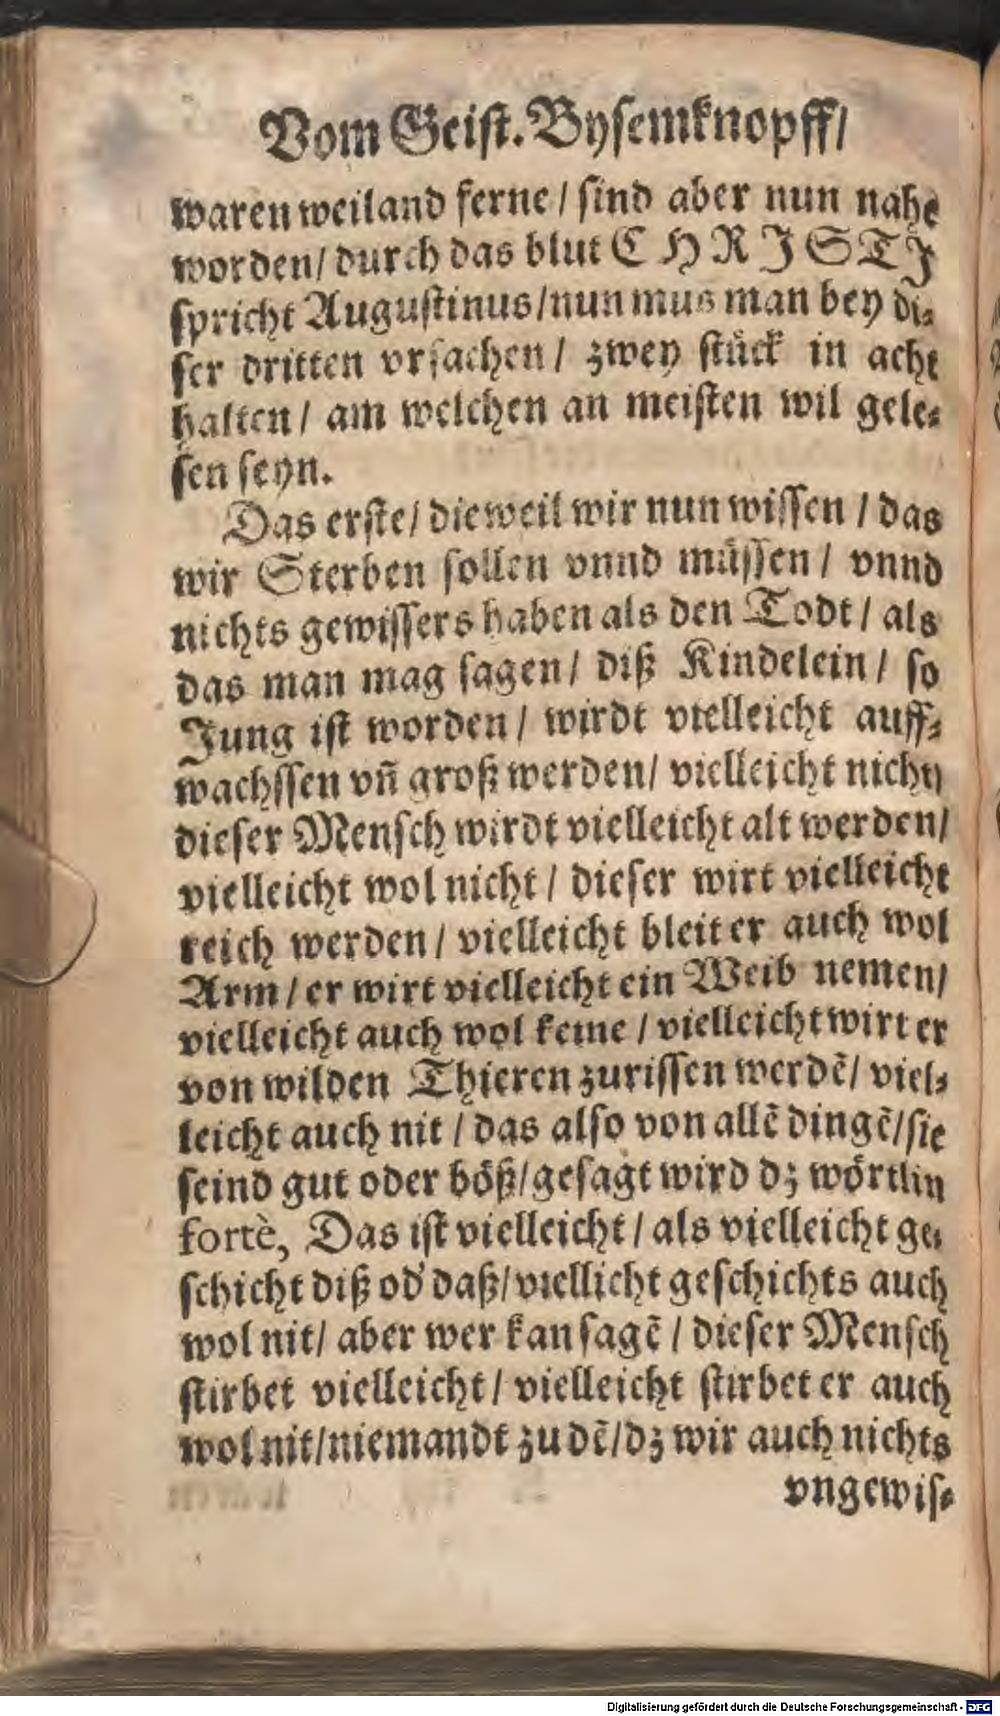 Vom Geist. Bysemknopff/
waren weiland ferne / sind aber nun nahe
worden/ durch das blut CHRISTI
spricht Augustinus/nun mus man bey di-
ser dritten vrsachen/ zwey stück in acht
halten/ am welchen an meisten wil gele-
sen seyn.
Das erste/ dieweil wir nun wissen / das
wir Sterben sollen vnnd müssen/ vnnd
nichts gewissers haben als den Todt/ als
das man mag sagen/ diß Kindelein/ so
Jung ist worden/ wirdt vielleicht auff-
wachssen vñ groß werden/ vielleicht nicht/
dieser Mensch wirdt vielleicht alt werden/
vielleicht wol nicht/ dieser wirt vielleicht
reich werden/ vielleicht bleit er auch wol
Arm/ er wirt vielleicht ein Weib nemen/
vielleicht auch wol keine / vielleicht wirt er
von wilden Thieren zurissen werdē/ viel-
leicht auch nit / das also von allē dingē/sie
seind gut oder böß/gesagt wird dz wörtlin
fortè, Das ist vielleicht/ als vielleicht ge-
schicht diß od' daß/viellicht geschichts auch
wol nit/ aber wer kan sagē / dieser Mensch
stirbet vielleicht/ vielleicht stirbet er auch
wol nit/niemandt zu dē/dz wir auch nichts
vngewis-
Digitalisierung gefördert durch die Deutsche Forschungsgemeinschaft - DFG